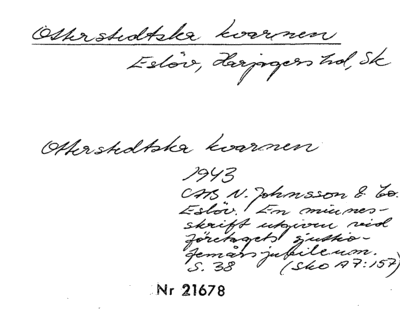 Otterstedtska kvarnen
Eslöv, Harjagers hd, Sk
Otterstedtska kvarnen
1943
(AB N. Johnsson & Co.
Eslöv. En minnes-
skrift utgiven vid
företagets sjuttio-
femårsjubileum.
S. 38 (Sko A7:157)
Nr 21678